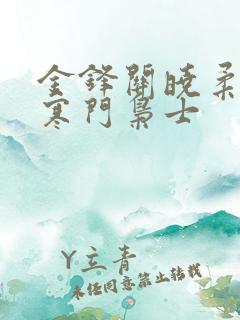 金鋒關曉柔
寒門梟士
Y立青
未经同意禁止转载